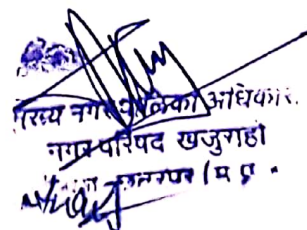 मुख्य नगर पालिका अधिकारी
नगर परिषद खजुराहो
छतरपुर (म.प्र.